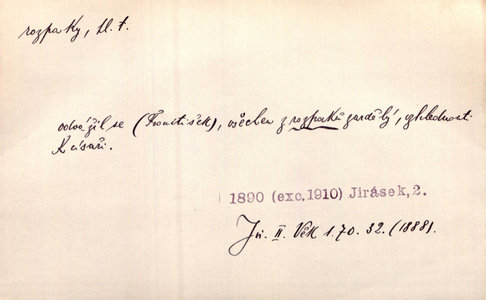 rozpaky, pl. t.
odvážil se (František), všechen z rozpaků zardělý, zhlédnouti
k císaři.
1890 (exc.1910) Jirásek,2.
Jir. II. Věk 1.70. 32. (1888).